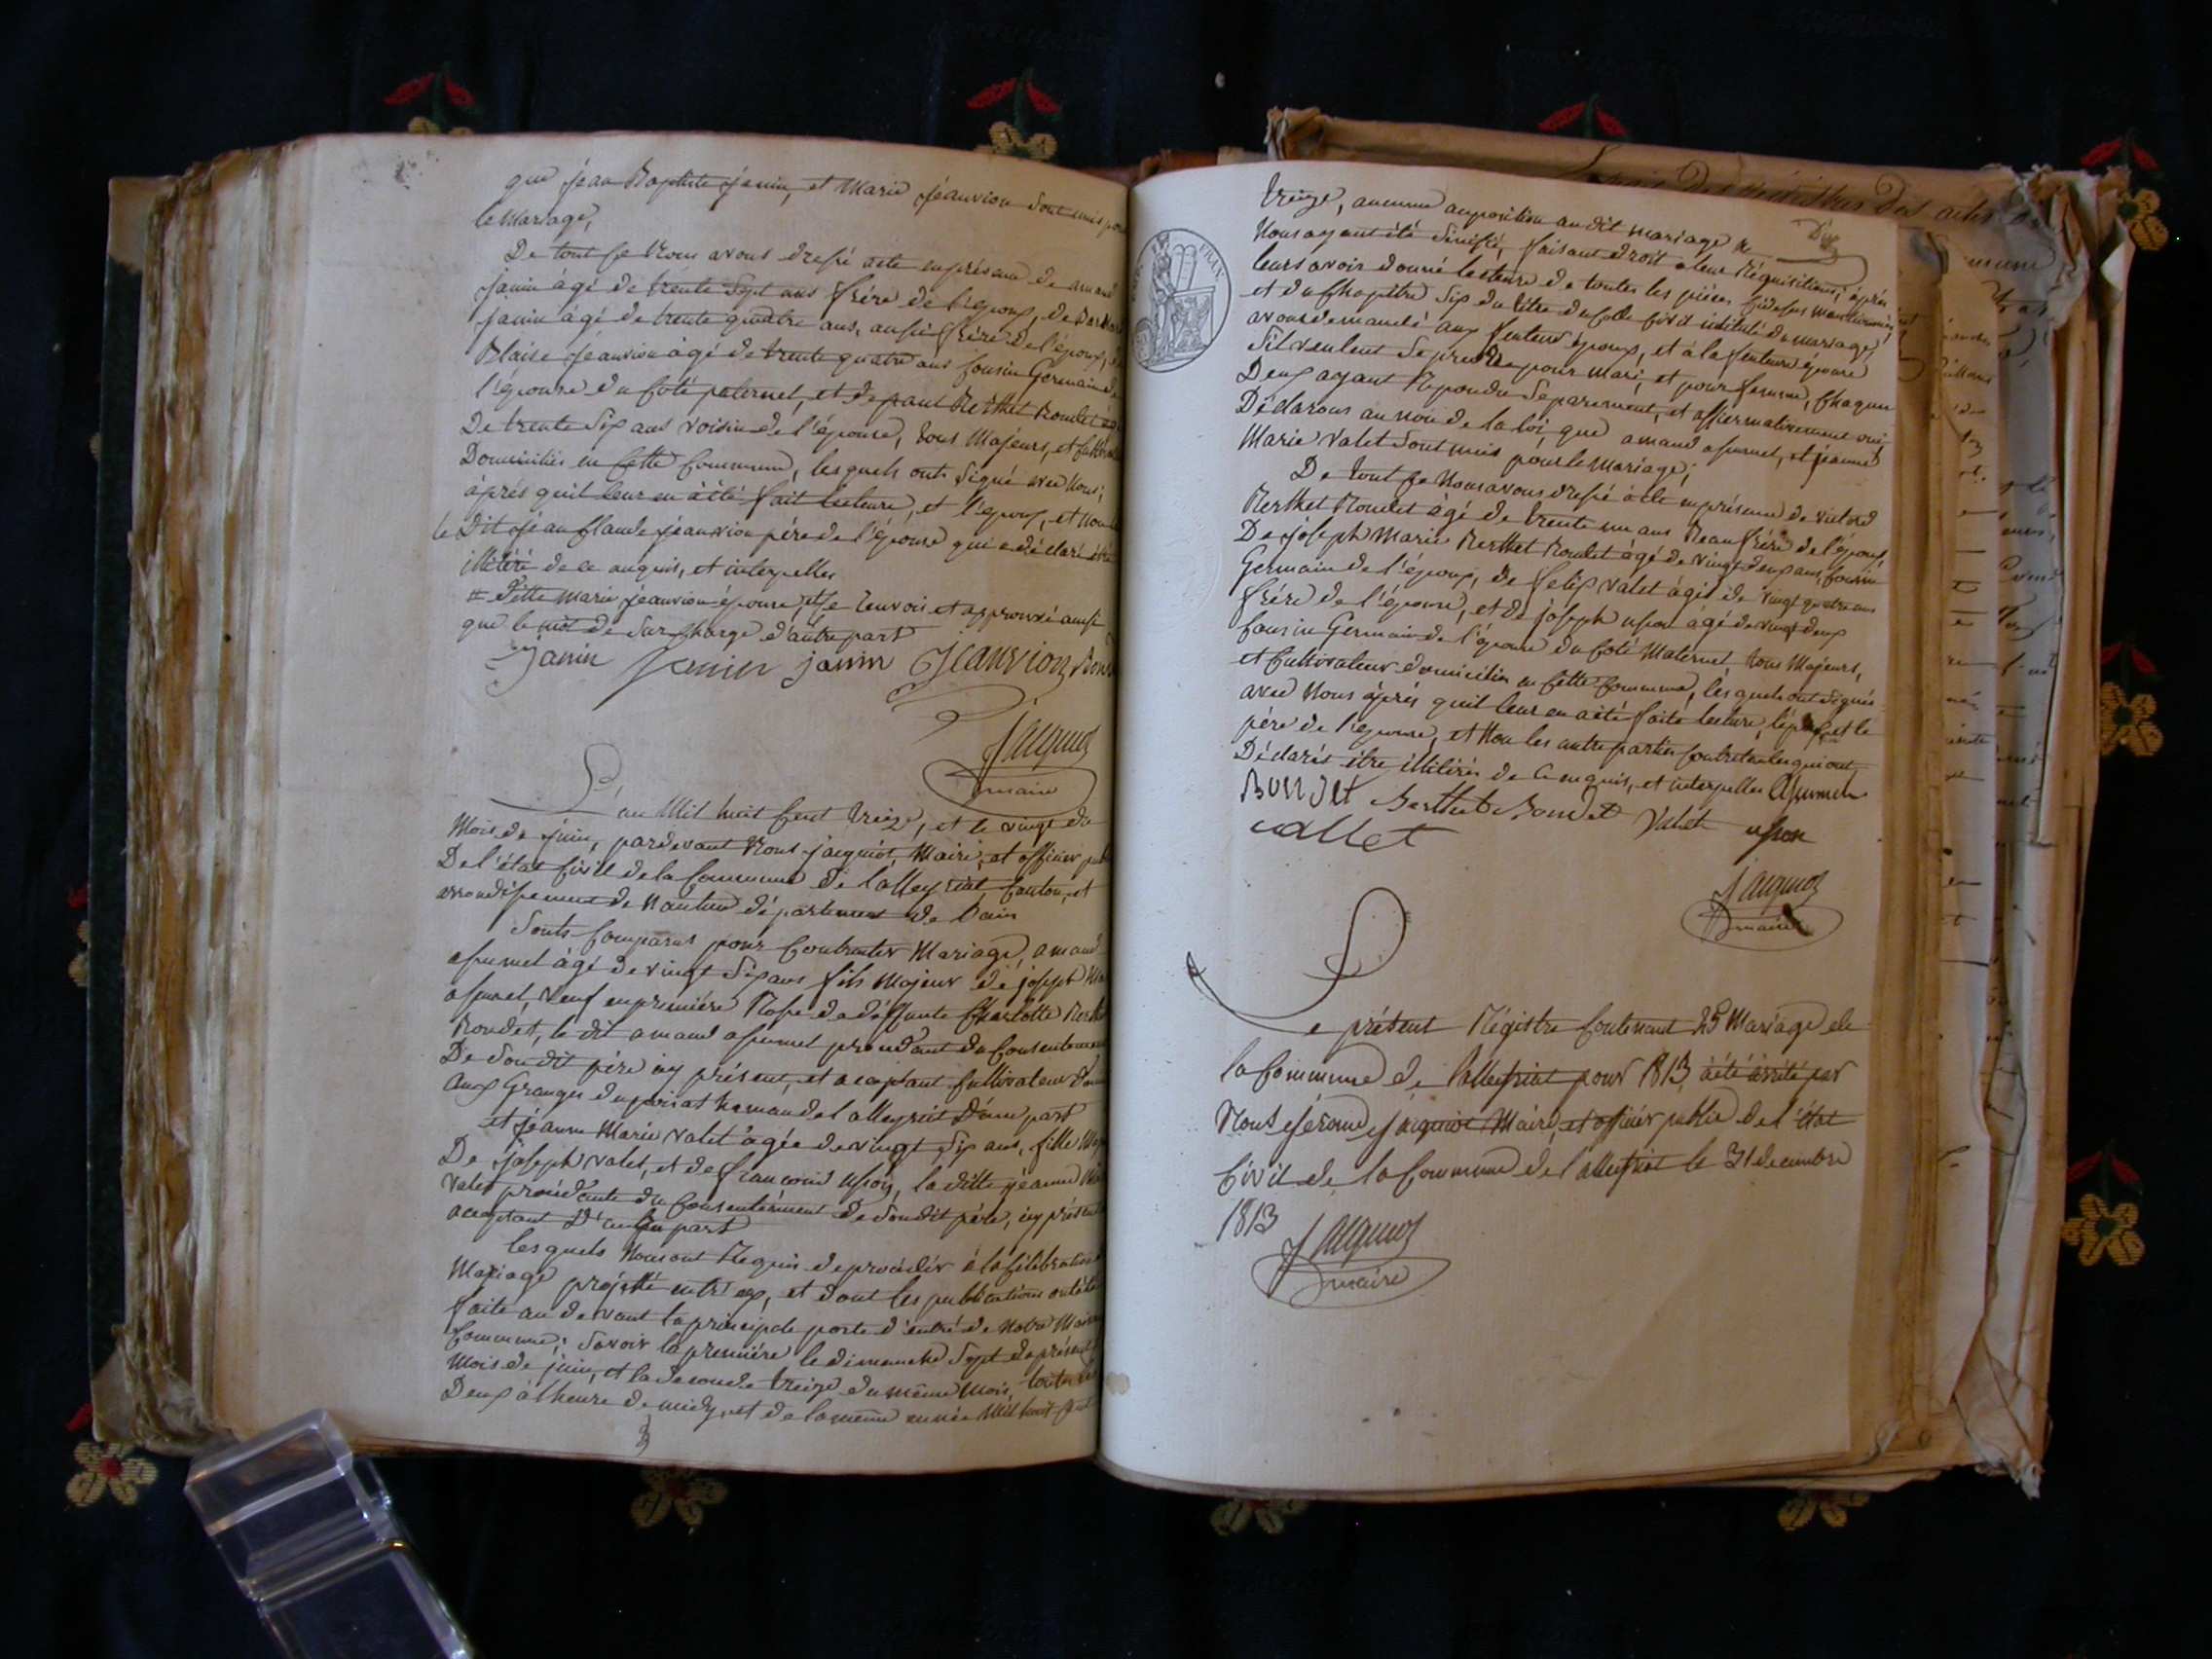 que jéan Baptiste janin, et Marie jéanvion sont unis pour
le Mariage,
De tout ce Nous avons dressé acte en présence de amand
janin âgé de trente sept ans frére de l'époux, de
janin âgé de trente quatre ans, aussi frére de l'époux, de
Blaise jeanvion âgé de trente quatre ans cousin Germain de
l'épouse du coté paternel, et de paul Berthet Bondet
De trente six ans voisin de l'épouse, tous Majeurs, et
Domiciliés en cette commune, lesquels onts signé avec Nous;
àprés quil leur en àèté fait lecture, et l'époux, et non
le Dit jéan claude jéanvion pére de l'épouse qui a déclaré être
illitéré de ce anquis, et interpellés
# ditte marie jeanvion épouse, et le renvois et approuvé aussi
que le mot de surcharge d'autre part
Janin janin janin Jeanvion
Jacquiot
maire
L'an Mil huit cent treize, et le vingt du
Mois de juin, pardevant Nous jacquiot, Maire, et officier
De l'état civil de la commune de lalleyriat, canton, et
arrondissement de Nantua département de lain
Sonts comparus pour contracter Mariage, amand
assumel âgé de vingt six ans fils Majeur de joseph
assumel, veuf en premiére Nosse de déffunte charlotte
Bondet, le dit amand assumel procédant du consentement
De son dit pére icy présent, et acceptant cultivateur
aux Granges du poisat hameau de lalleyriat D'une part
et jéanne Marie valet âgée de vingt six ans, fille
De joseph valet, et de francoise usson, la ditte jéanne
valet procédante du consentément de son dit pére, icy présent
acceptant D'autre part
lesquels Nous ont Requis de procédér à la célébration
Mariage projetté entr'eux, et dont les publications ont été
faite au devant la principale porte d'entré de Notre Maison
commune; savoir la premiére le dimanche sept du présent
Mois de juin, et la seconde treize du même Mois, toutes les
Deux àlheure de midy, et de la même année Mil huit cent
treize, aucunne auposition au dit mariage ne
Nous ayant été sinifié, faisant droit a leur Réquisitions; àprés
leurs avoir donné lecteure de toutes les piéces cidessus mentionnées,
et du chapitre six du titre du code civil intitulé du mariage,
avons demandé aux futeur époux, et à la futeure épouse
Sil veulent se prendre pour mari, et pour femme, chaqun
Deux ayant Répondu séparement, et affiermativement oui
Déclarons au nom de la loi, que amand assumel, et jéanne
Marie valet sont unis pour le Mariage;
De tout ce Nous avons dressé àcte en présence de victord
Berthet Bondet âgé de trente un ans Beau frére de l'époux,
De joseph Marie Berthet Bondet âgé de vingt deux ans, cousin
Germain de l'époux, de felix valet âgé de vingt quatre ans
frére de l'épouse, et de joseph usson âgé de vingt deux
cousin Germain de l'épouse du coté Maternel, tous Majeurs,
et cultivateur domicilies en cette commune, lésquels ont signés
avec Nous àprés quil leur en aèté faite lecture, lépoux et le
pére de l'épouse, et Non les autre parties contractantes qui ont
Déclarés être illitérés de ce enquis, et interpellés assumel
Bondet Berthet Bondet Valet usson
vallet
Jacquiot
maire
Le présent Régistre contenant 25 Mariage de
la commune de lalleyriat pour 1813 àété àrrêté par
Nous jérome jacquiot Maire, et officier public de l'état
civil de la commune de lalleyriat le 31 decembre
1813
Jacquiot
maire